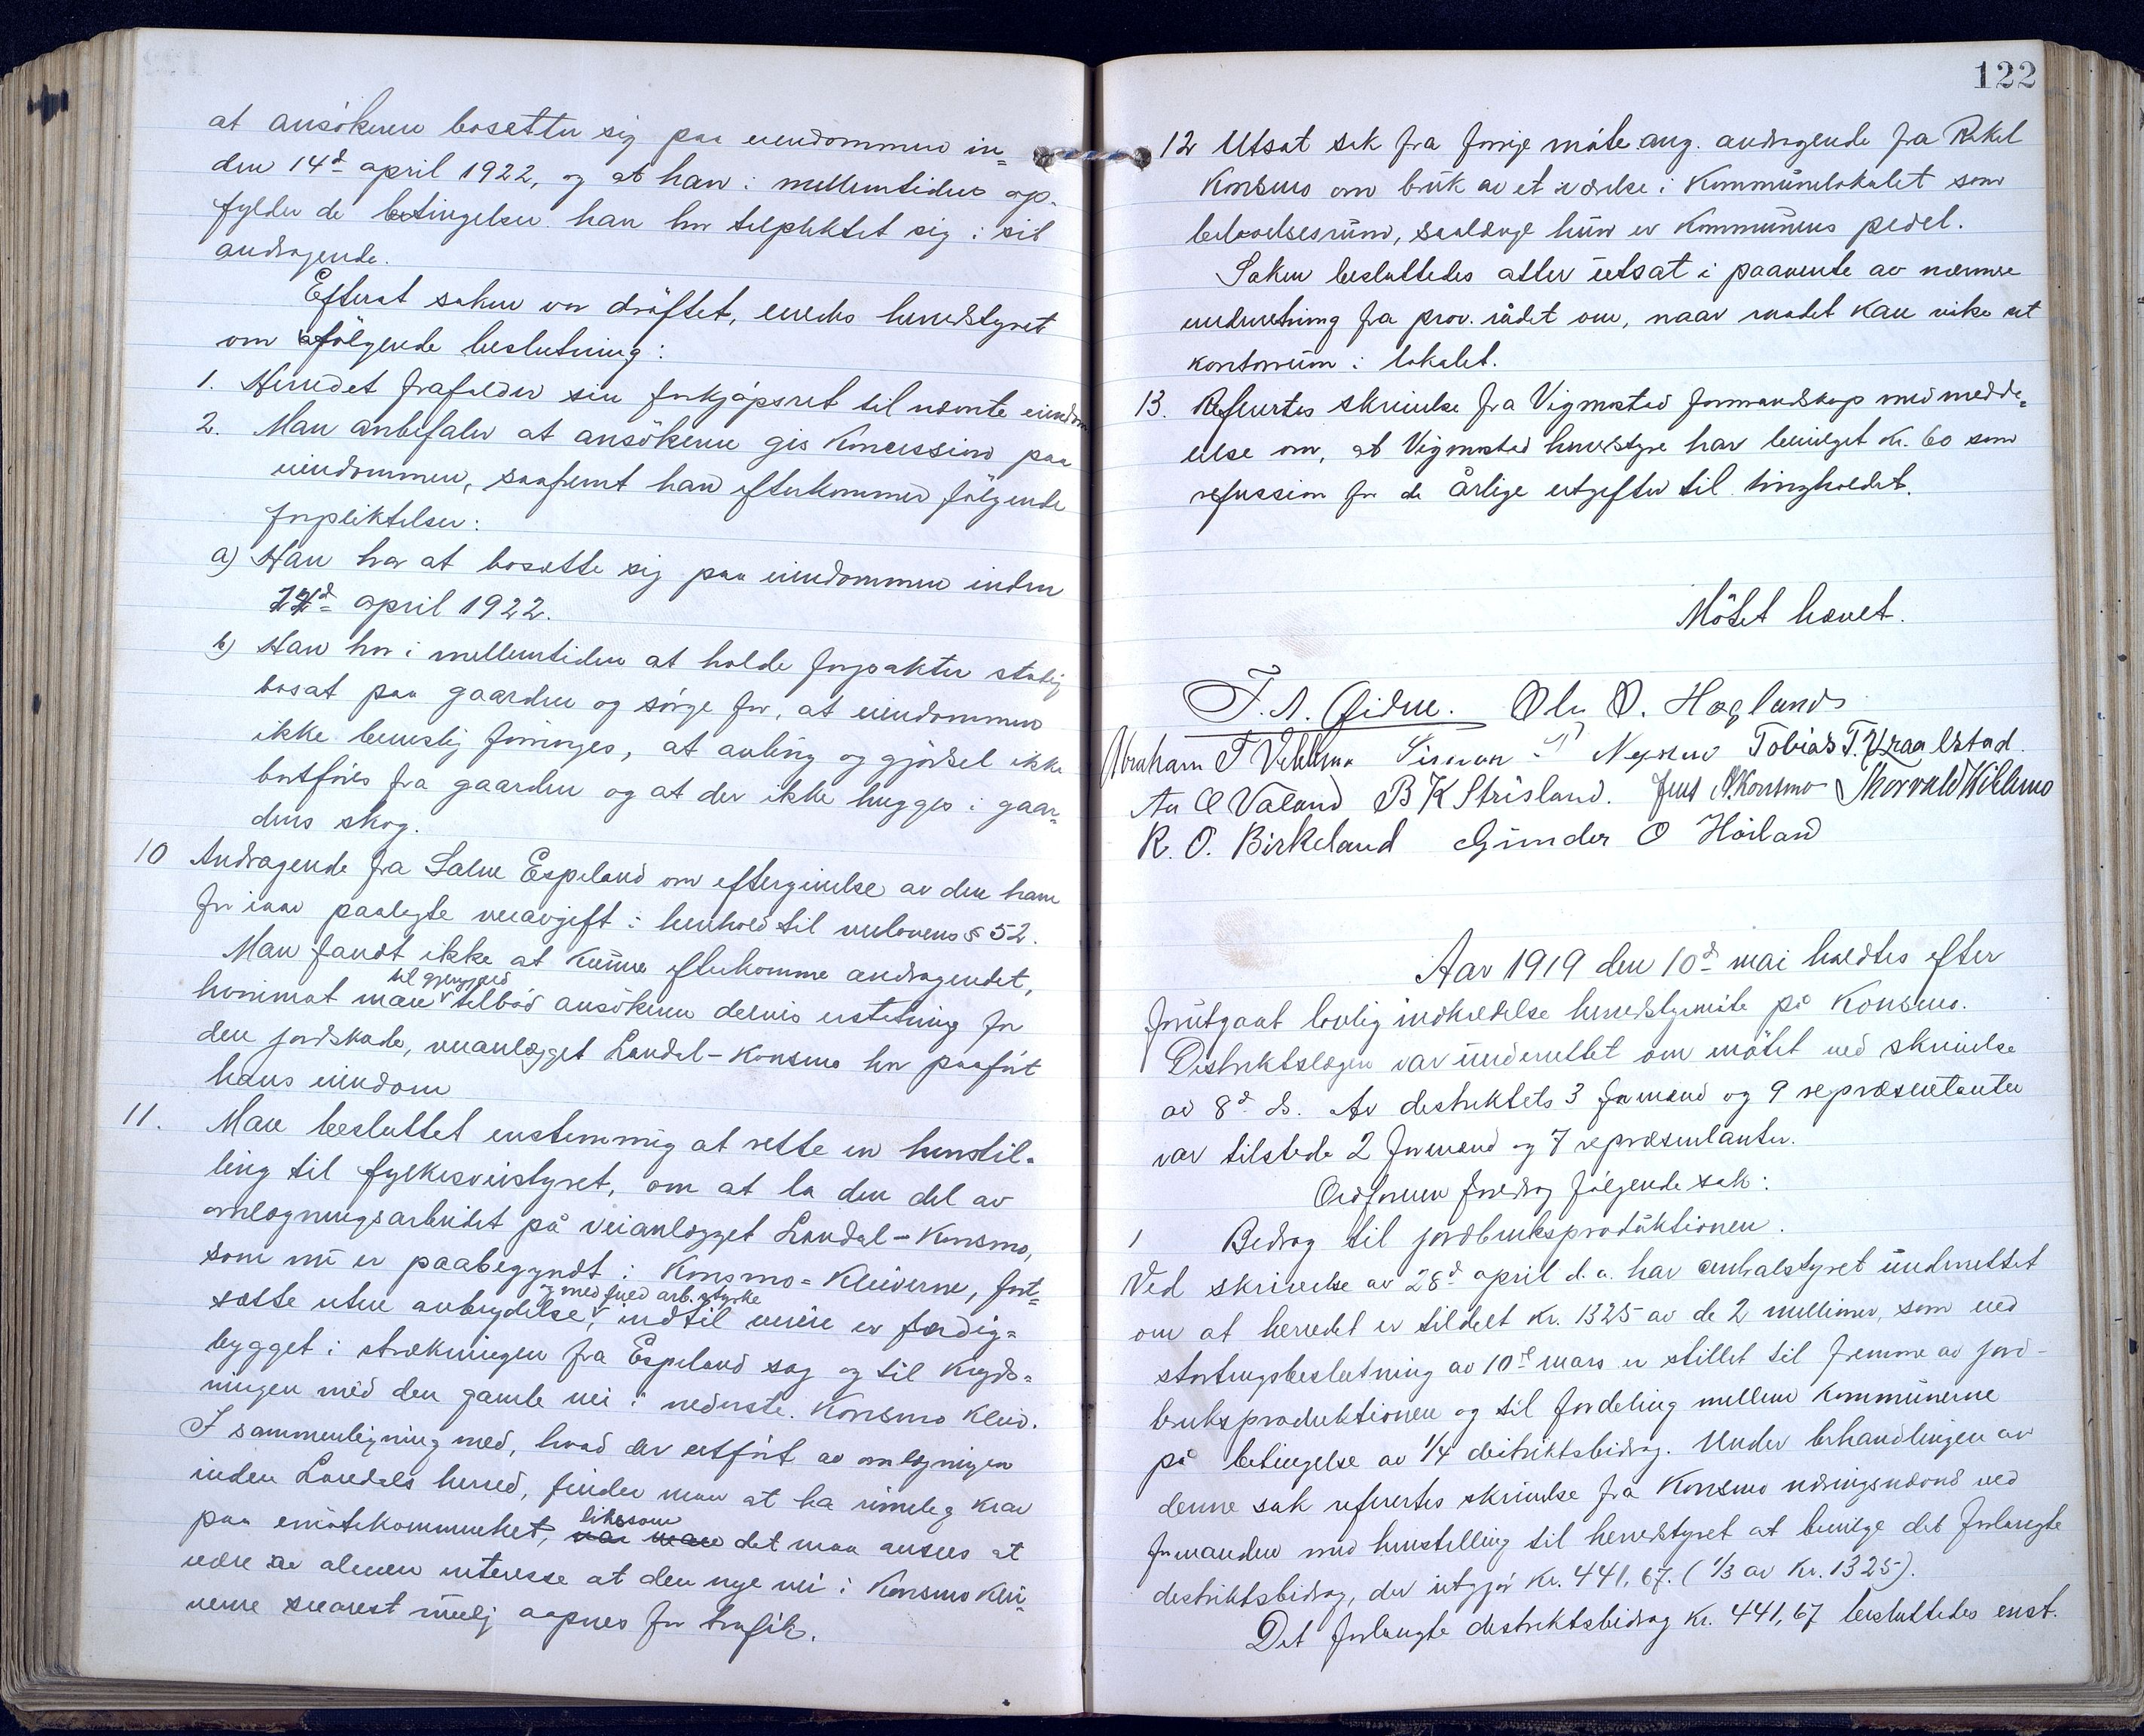 at ansökeren bosætter sig paa eiendommen in=
den 14d april 1922, og at han i mellemtiden op-
fylder de betingelser han har tilpliktet sig i sit
andragende.
Efterat saken var dröftet, enedes herredstyret
om følgende beslutning:
1. Herredet frafalder sin forkjöpsret til nævnte eiendom
2. Man anbefaler at ansökeren gis koncession paa
eiendommen, saafremt han efterkommer fölgende
forpliktelser:
a) Han har at bosætte sig paa eiendommen inden
14d april 1922.
b) Han har i mellemtiden at holde forpakter stadig
bosat paa gaarden og sörge for, at eiendommen
ikke væsentlig forringes, at avling og gjödsel ikke
bortföres fra gaarden og at der ikke hugges i gaar=
dens skog.
10 Andragende fra Salve Espeland om eftergivelse av den ham
for iaar paalagte veiavgift i henhold til veilovens § 52.
Man fandt ikke at kunne efterkomme andragendet,
til gjengjæld
hvorimot man tilböd ansökeren delvis erstatning for
den jordskade, veianlægget Laudal-Konsmo har paafört
hans eiendom
11. Man besluttet enstemmig at rette en henstil=
ling til fylkesveistyret, om at la den del av
omlægningsarbeidet på veianlægget Laudal-Konsmo,
som nu er paabegyndt i Konsmo=Kleiverne, fort=
og med fuld arb.styrke
sætte uten avbrydelse, indtil veien er færdig=
bygget i strækningen fra Espeland sag og til kryds=
ningen med den gamle vei i nederste Konsmo Kleiv.
I sammenligning med, hvad der utfört av omlægningen
inden Laudals herred, finder man at ha rimelig krav
likesom
paa imötekommenhet, det maa ansees at
være av almen interesse at den nye vei i Konsmo Klei=
verne snarest mulig aapnes for trafik.
122
12 Utsat sak fra forrige möte ang. andragende fra Rakel
Konsmo om bruk av et værelse i Kommunelokalet som
beboelsesrum, saalænge hun er Kommunens pedel.
Saken besluttedes atter utsat i paavente av nærmere
underretning fra prov. rådet om, naar raadet kan vike sit
kontorrum i lokalet.
13. Refertes skrivelse fra Vigmostad formandskap med medde=
else om, at Vigmostad herredstyre har bevilget kr. 60 som
refusion for de årlige utgifter til tingholdet.
Mötet hævet.
T. A. Øidne. Ole O. Hægland
Abraham T Vehlmo Simon Tobias T. Kraalstad.
Au O Valand B K Strisland. Jens N. Konsmo Thorvald Wehlmo
R. O. Birkeland Gunder O Höiland
Aar 1919 den 10d mai holdtes efter
forutgaat lovlig indkaldelse herredstyremöte på Konsmo.
Distriktslægen var underrettet om mötet ved skrivelse
av 8d ds. Av distriktets 3 formænd og 9 repræsentanter
var tilstede 2 formænd og 7 repræsentanter.
Ordföreren foredrog fölgende sak:
1 Bidrag til jordbruksproduktionen.
Ved skrivelse av 28d april d.a. har centralstyret underrettet
om at herredet er tildelt kr. 1325 av de 2 millioner, som ved
stortingsbeslutning av 10d mars er stillet til fremme av jord-
bruksproduktionen og til fordeling mellem kommunerne
på betingelse av 1/4 distriktsbidrag. Under behandlingen av
denne sak refertes skrivelse fra Konsmo næringsnævnd ved
formanden med henstilling til herredstyret at bevilge det forlangte
distriktsbidrag, der utgjör kr. 441,67. (1/3 av kr. 1325).
Det forlangte distriktsbidrag kr. 441,67 besluttedes enst.